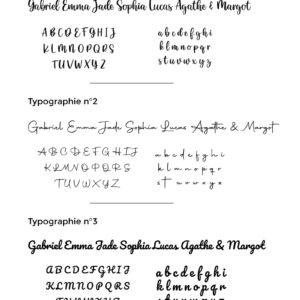 Gabriel Emma Jade Sophia Lucas Agathe & Margot
A B C D E F G H I J
K L M N O P Q R S
T U V W X Y Z
a b c d e f g h i
j k l m n o p q r
s t u v w x y z
Typographie n°2
Gabriel Emma Jade Sophia Lucas Agathe & Margot
A B C D E F G H I J
K L M N O P Q R S
T U V W X Y Z
a b c d e f g h i
k l m n o p q r
s t u v w x y z
Typographie n°3
Gabriel Emma Jade Sophia Lucas Agathe & Margot
A B C D E F G H I J
K L M N O P Q R S
T U V W X Y Z
a b c d e f g h i
j k l m n o p q r
s t u v w x y z